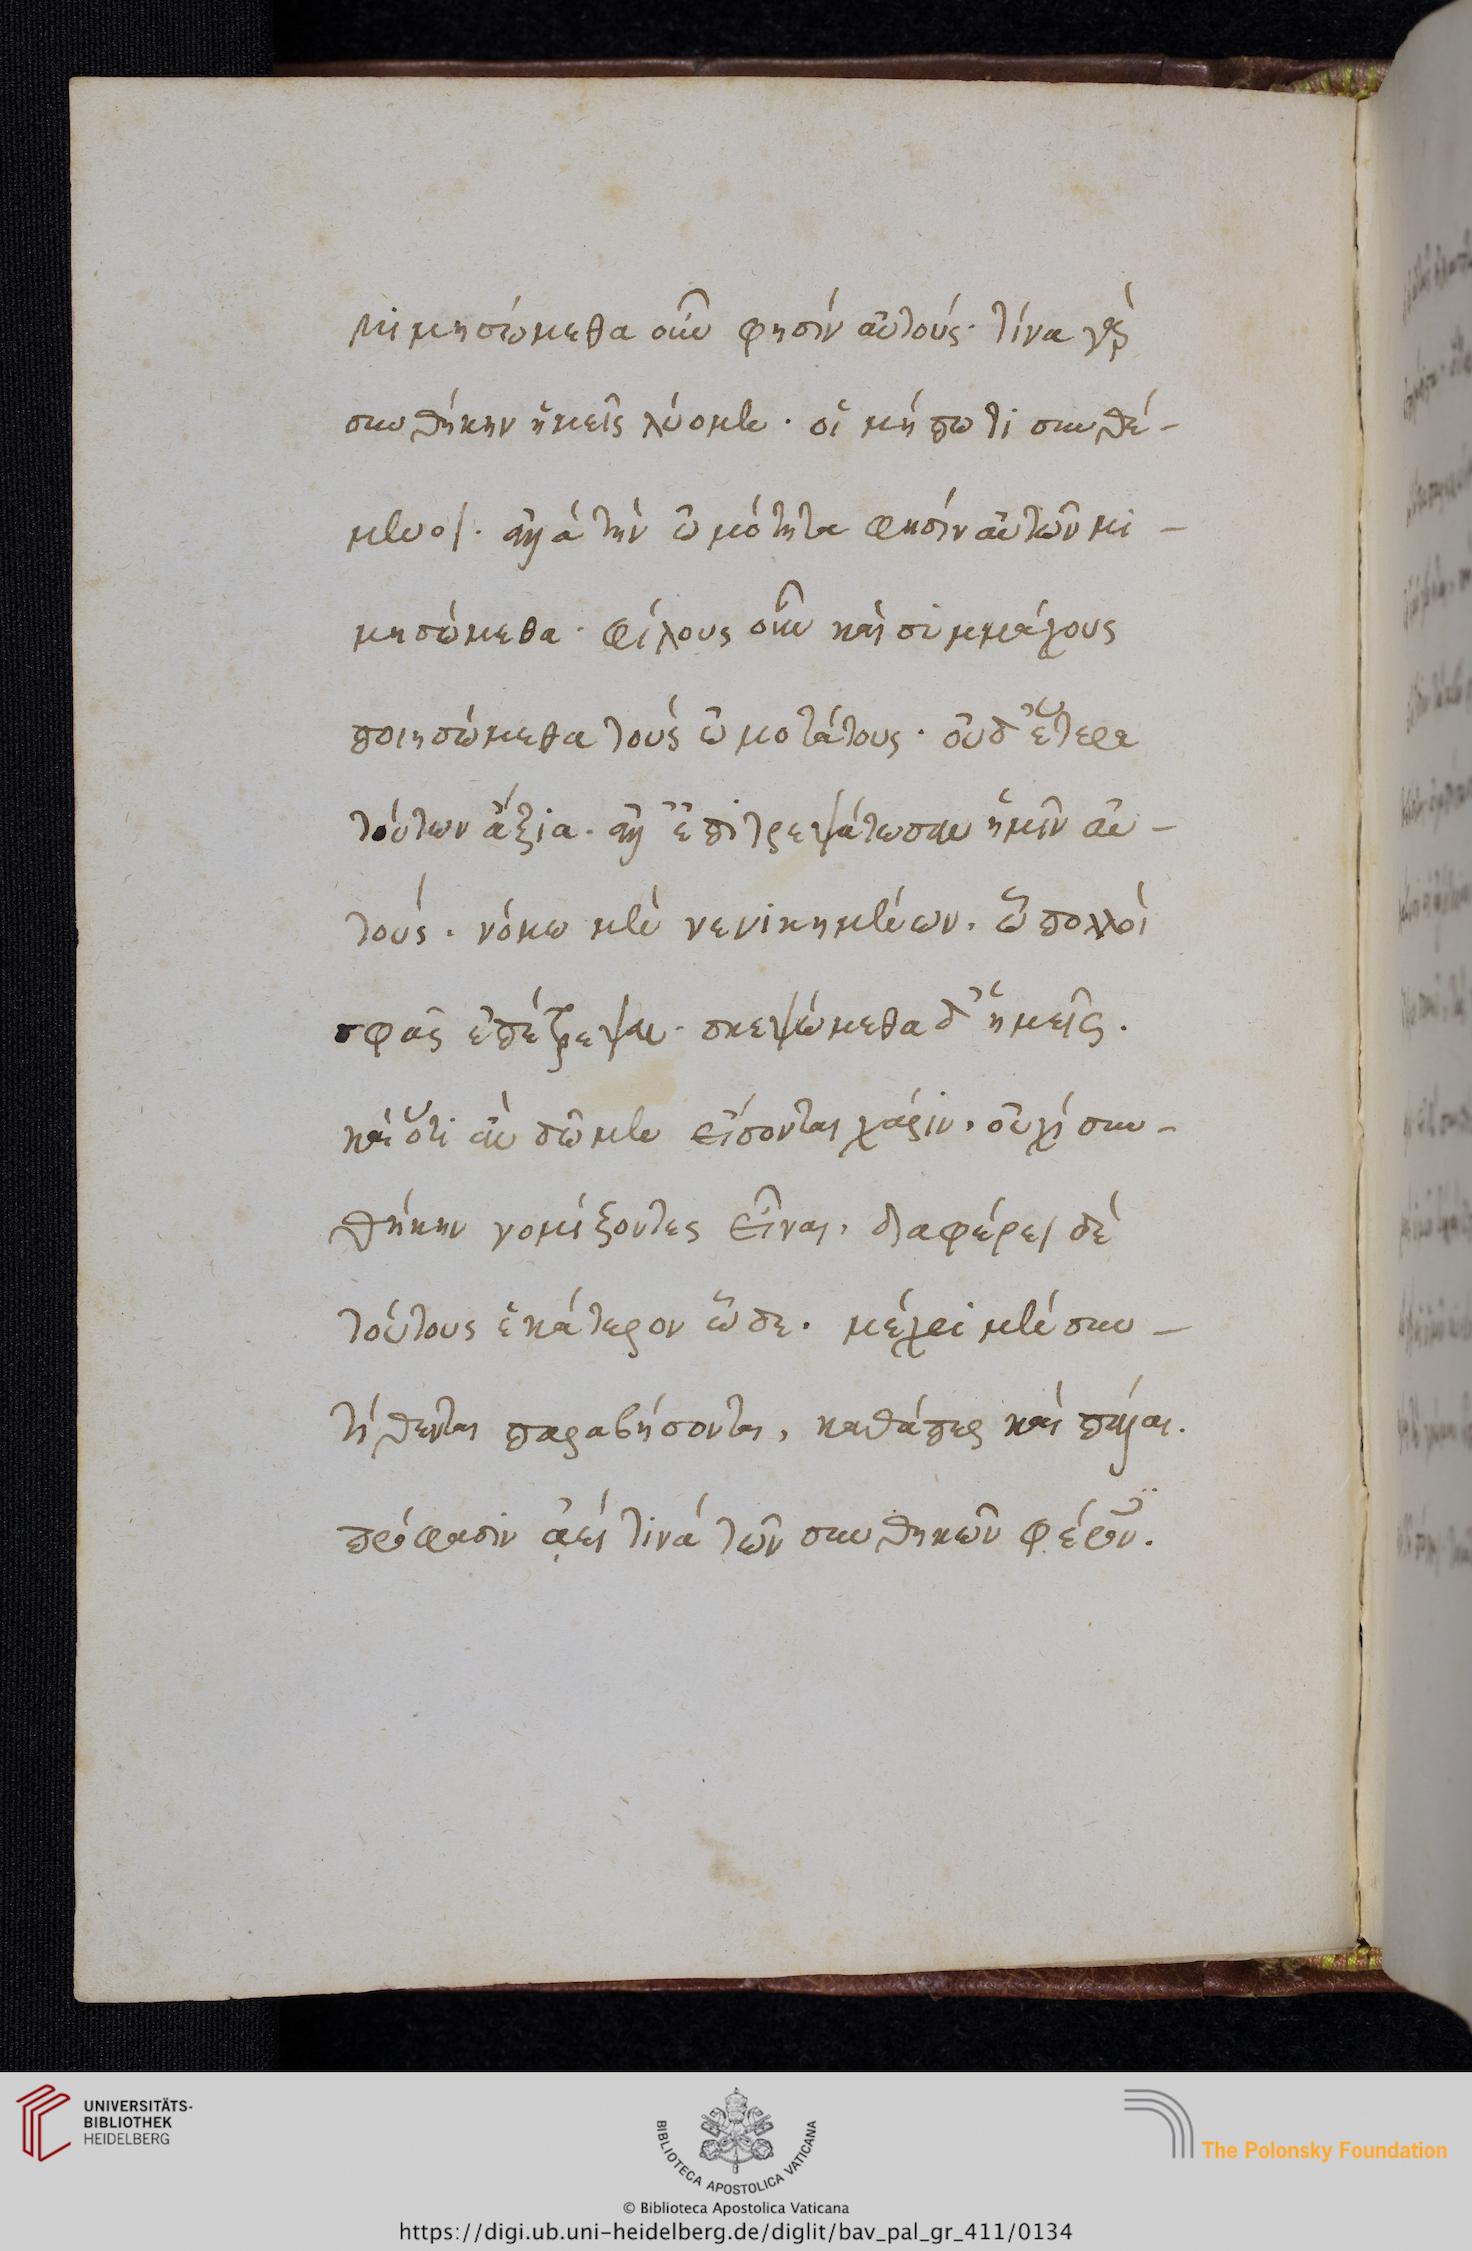 μιμησώμεθα οὖν φησὶν αὐτούς· τίνα γὰρ
συνθήκην ἡμεῖς λύομεν· οἱ μήπω τι συνθέ-
μενοι· ἀλλὰ τὴν ὠμότητα φησὶν αὐτῶν μι-
μησώμεθα· φίλους οὖν καὶ συμμάχους
ποιησώμεθα τοὺς ὠμοτάτους· οὐδ' ἕτερα
τούτων ἄξια· ἀλλ' ἐπιτρεψάτωσαν ἡμῖν αὐ-
τούς· νόμω μὲν νενικημένων, ὧ πολλοὶ
σφᾶς ἐπέτρεψαν· σκεψώμεθα δ' ἡμεῖς.
καὶ ὅτι ἂν δῶμεν εἴσονται χάριν, οὐχὶ συν-
θήκην νομίζοντες εἶναι, διαφέρει δὲ
τούτους ἑκάτερον ὧδε. μέχρι μὲν συν-
τίθενται παραβήσονται, καθάπερ καὶ πάλαι.
πρόφασιν ἀεί τινα τῶν συνθηκῶν φέρον.
UNIVERSITÄTS-
BIBLIOTHEK
HEIDELBERG
BIBLIOTECA APOSTOLICA VATICANA
The Polonsky Foundation
© Biblioteca Apostolica Vaticana
https://digi.ub.uni-heidelberg.de/diglit/bav_pal_gr_411/0134